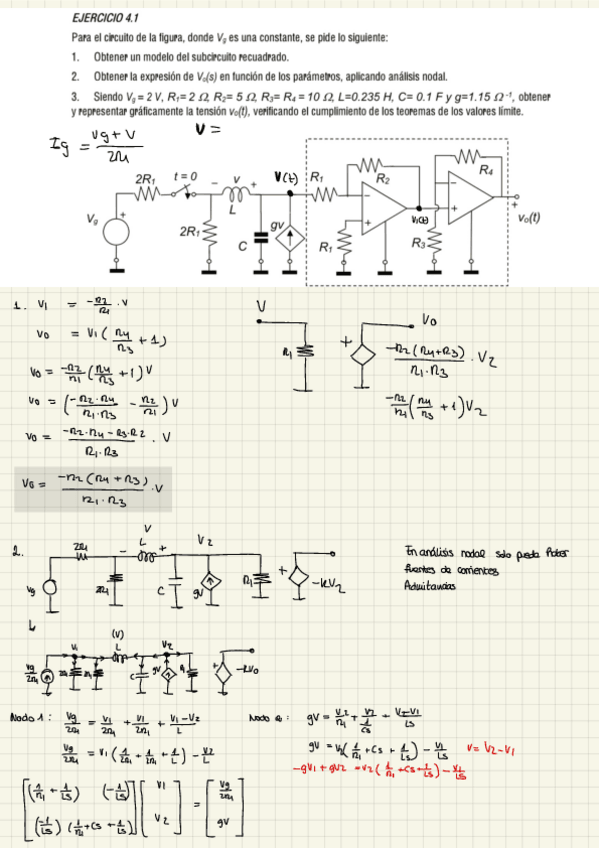 EJERCICIO 4.1
Para el circuito de la figura, donde Vg es una constante, se pide lo siguiente:
1. Obtener un modelo del subcircuito recuadrado.
2. Obtener la expresión de Vo(s) en función de los parámetros, aplicando análisis nodal.
3. Siendo Vg = 2 V, R1= 2 Ω, R2= 5 Ω, R3= R4 = 10 Ω, L=0.235 H, C= 0.1 F y g=1.15 Ω⁻¹, obtener
y representar gráficamente la tensión vo(t), verificando el cumplimiento de los teoremas de los valores límite.
Ig = (Vg + V)/2R1
V =
2R1 t = 0 − v + V(t) R1 R2 R4
L
Vg + 2R1 C gv R1 V1(t) R3 + vo(t)
1. V1 = -R2/R1 · V
Vo = V1 (R4/R3 + 1)
Vo = -R2/R1 (R4/R3 + 1) V
Vo = (-R2·R4/R1·R3 - R2/R1) V
Vo = (-R2·R4 - R3·R2)/(R1·R3) · V
Vo = -R2 (R4 + R3)/(R1·R3) · V
V
R1
+
Vo
-R2 (R4+R3)/(R1·R3) · V2
-R2/R1 (R4/R3 + 1) V2
2.
2R1 − V L + V2
Vg 2R1 C gV R1 + -kV2
En análisis nodal solo puedo haber
fuentes de corrientes
Admitancias
V1 (V) L V2
Vg/2R1 2R1 2R1 C gV R1 + -kV0
Nodo 1: Vg/2R1 = V1/2R1 + V1/2R1 + (V1-V2)/L
Vg/2R1 = V1 (1/2R1 + 1/2R1 + 1/L) - V2/L
Nodo 2: gV = V2/R1 + V2/(1/Cs) + (V2-V1)/Ls
gV = V2 (1/R1 + Cs + 1/Ls) - V1/Ls V = V2 - V1
-gV1 + gV2 = V2 (1/R1 + Cs + 1/Ls) - V1/Ls
[(1/R1 + 1/Ls) (-1/Ls)] [V1] = [Vg/2R1]
[(-1/Ls) (1/R1 + Cs + 1/Ls)] [V2] [gV]